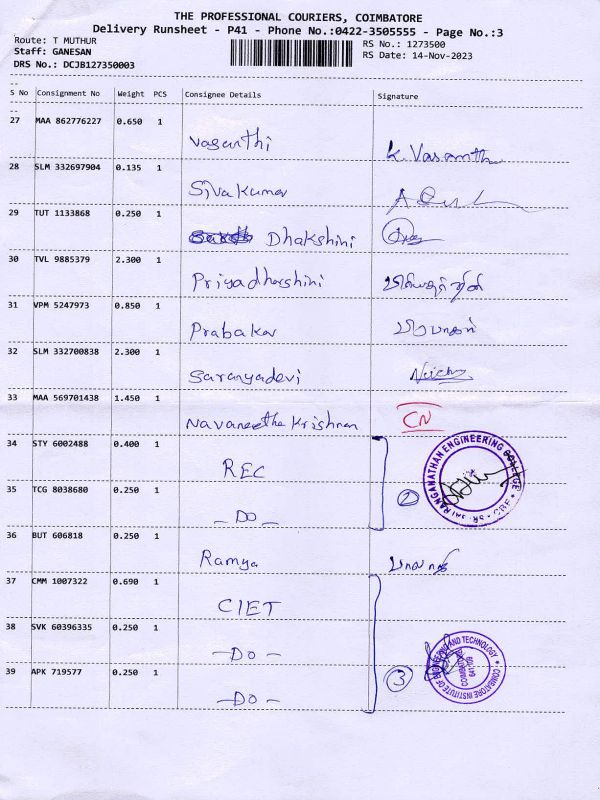 THE PROFESSIONAL COURIERS, COIMBATORE
Delivery Runsheet - P41 - Phone No.:0422-3505555 - Page No.:3
Route: T MUTHUR
RS No.: 1273500
Staff: GANESAN
RS Date: 14-Nov-2023
DRS No.: DCJB127350003
S No Consignment No Weight PCS Consignee Details Signature
27 MAA 862776227 0.650 1 Vasanthi K. Vasanthi
28 SLM 332697904 0.135 1 Sivakumar
29 TUT 1133868 0.250 1 Dhakshini
30 TVL 9885379 2.300 1 Priyadharshini பிரியதர்ஷினி
31 VPM 5247973 0.850 1 Prabakar பிரபாகர்
32 SLM 332700838 2.300 1 Saranyadevi
33 MAA 569701438 1.450 1 Navaneetha Krishnan CN
34 STY 6002488 0.400 1 REC
35 TCG 8038680 0.250 1 - Do - 2
SRI RANGANATHAN ENGINEERING COLLEGE * CBE *
36 BUT 606818 0.250 1 Ramya
37 CMM 1007322 0.690 1 CIET
38 SVK 60396335 0.250 1 - Do - 3
COIMBATORE INSTITUTE OF ENGINEERING AND TECHNOLOGY
COIMBATORE
641 109
39 APK 719577 0.250 1 - Do -